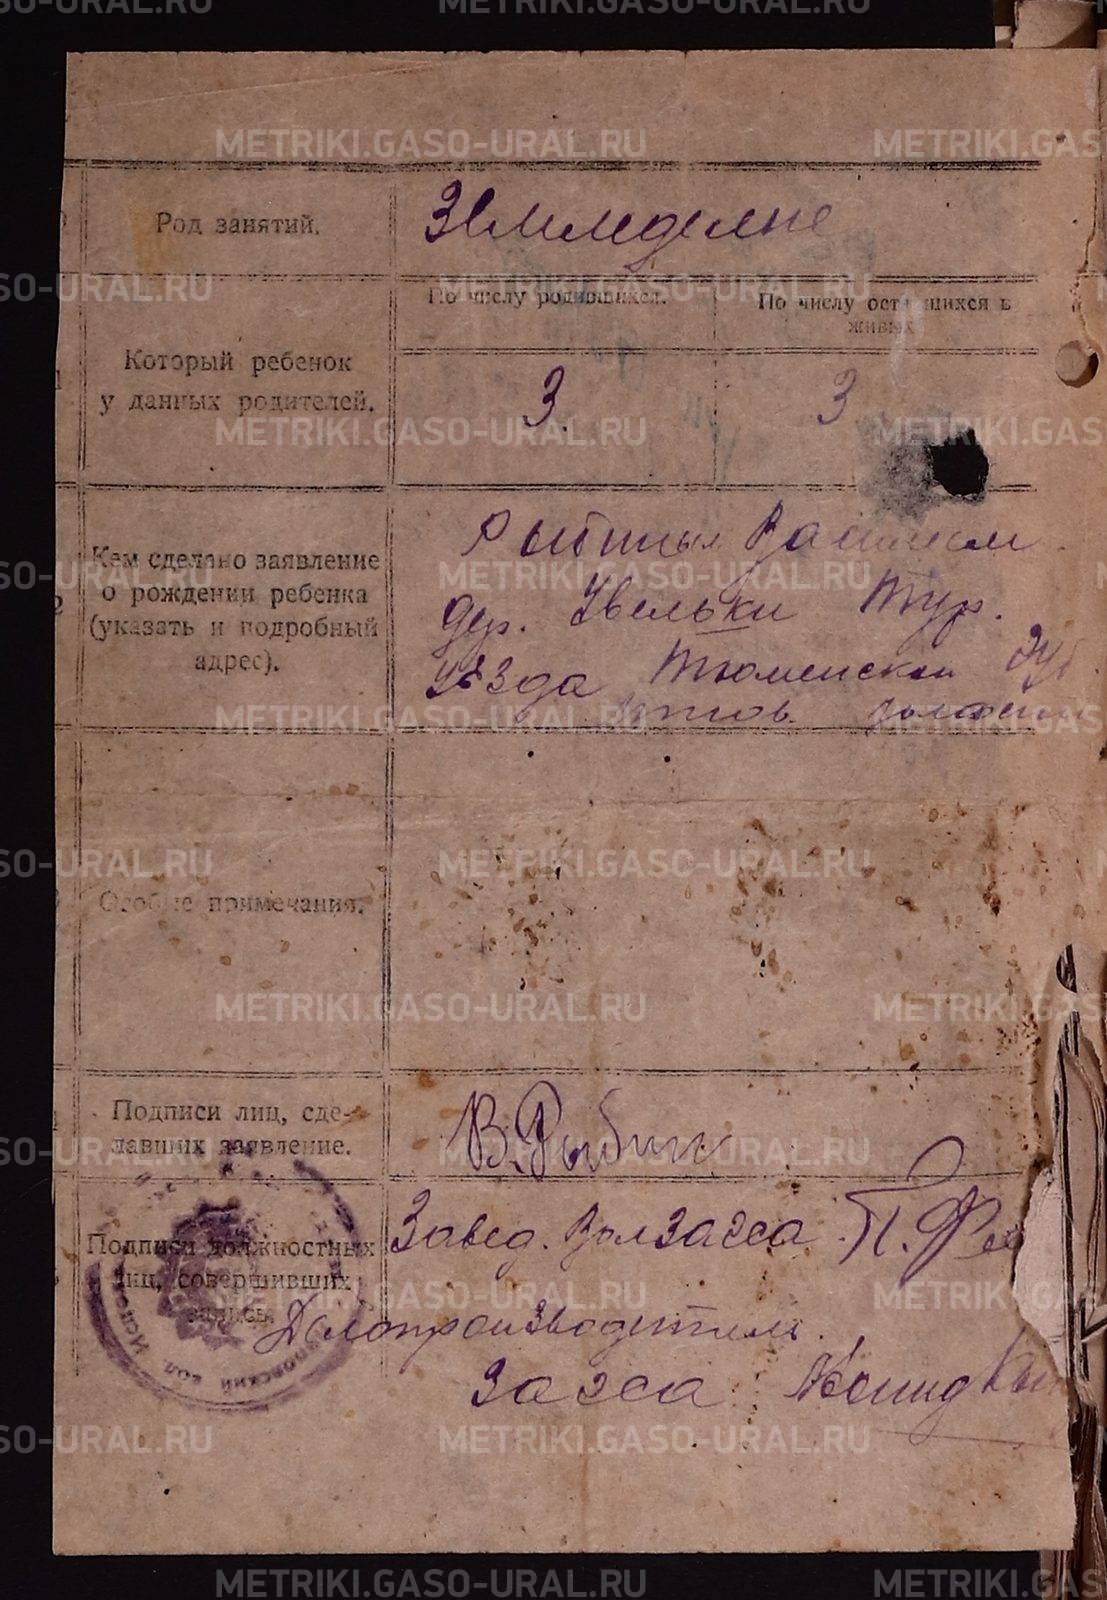 METRIKI.GASO-URAL.RU
Род занятий.
Земледелие
По числу родившихся.
По числу оставшихся в
живых
Который ребенок
у данных родителей.
3.
3
Кем сделано заявление
о рождении ребенка
(указать и подробный
адрес).
Рыбиным
дер. Увельки Тур.
уезда Тюменской
Особые примечания.
Подписи лиц, сде-
лавших заявление.
В. Рыбин
Подписи должностных
лиц, совершивших
запись.
Завед. Волзагса П.
Делопроизводитель
Загса